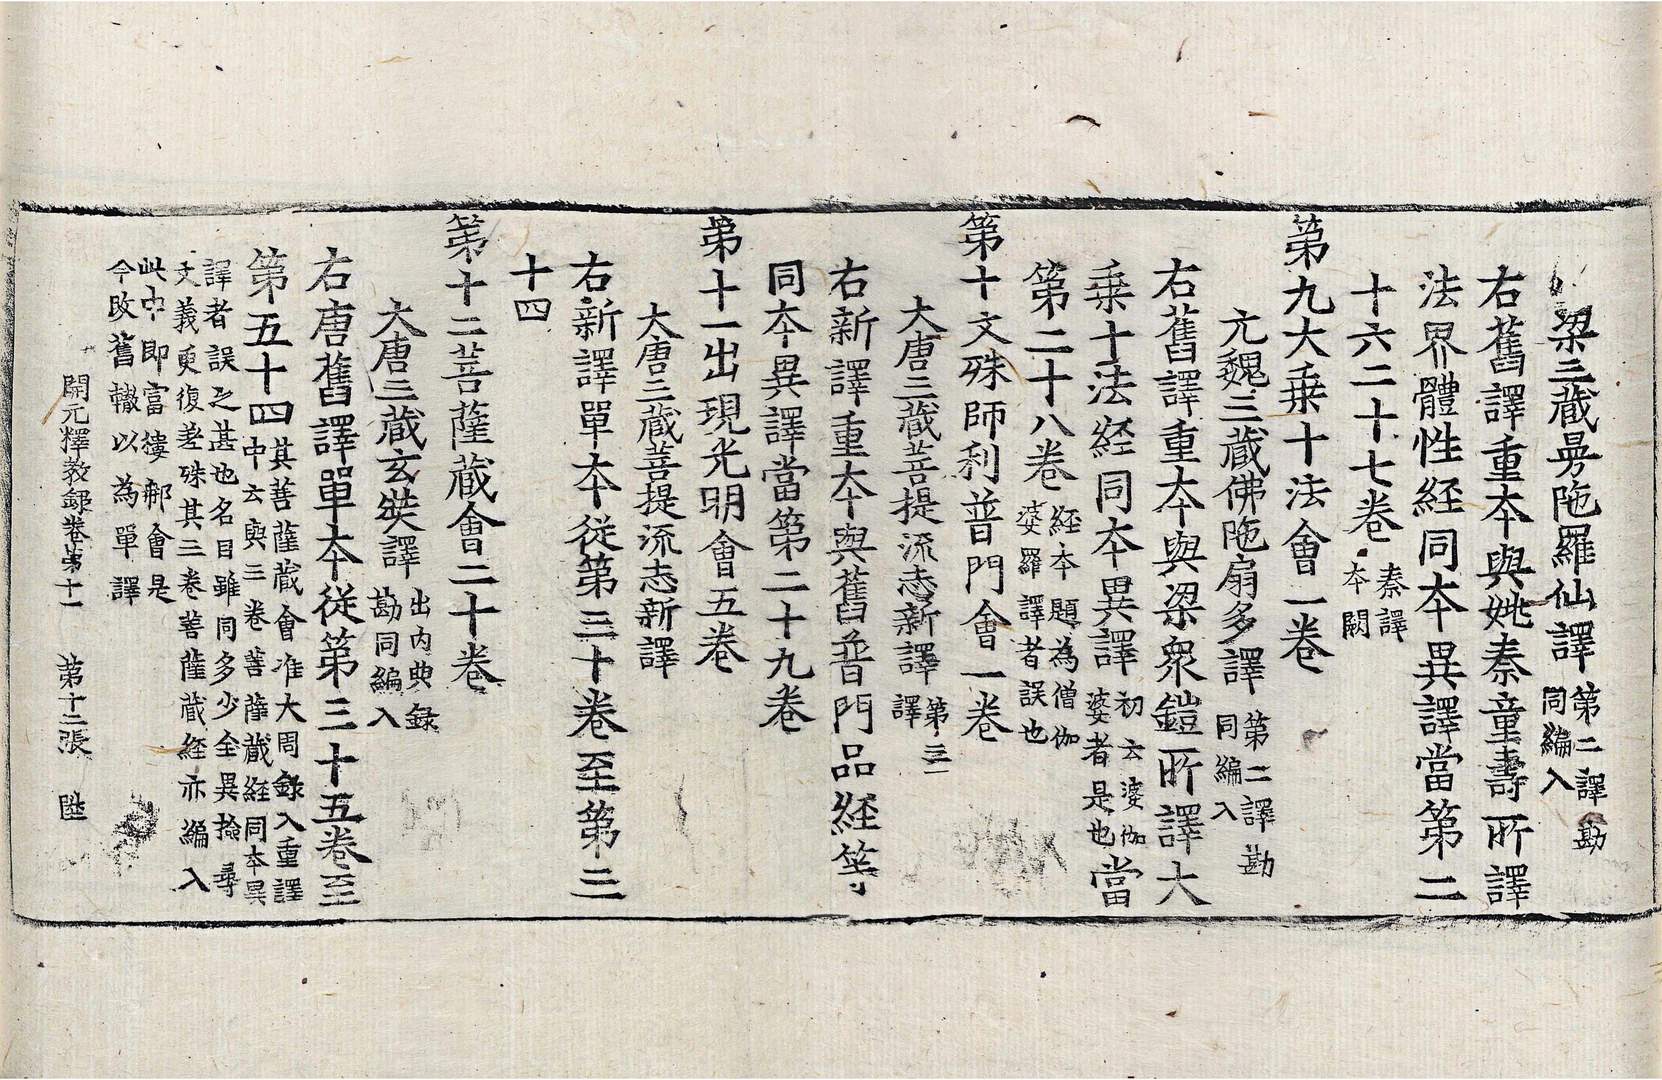 梁三藏曼陁羅仙譯第二譯勘同編入
右舊譯重本與姚秦童壽所譯
法界體性經同本異譯當第二
十六二十七卷秦譯本闕
第九大乗十法會一卷
元魏三藏佛陁扇多譯第二譯勘同編入
右舊譯重本與梁衆鎧所譯大
乗十法経同本異譯初云婆伽婆者是也當
第二十八卷経本題為僧伽婆羅譯者誤也
第十文殊師利普門會一卷
大唐三藏菩提流志新譯第三譯
右新譯重本與舊普門品経等
同本異譯當第二十九卷
第十一出現光明會五卷
大唐三藏菩提流志新譯
右新譯單本從第三十卷至第三
十四
第十二菩薩藏會二十卷
大唐三藏玄奘譯出内典録勘同編入
右唐舊譯單本從第三十五卷至
第五十四其菩薩藏會准大周録入重譯中云與三卷菩薩藏経同本異
譯者誤之甚也名目雖同多少全異撿尋
文義更復差殊其三卷菩薩藏経亦編入
此中即富樓那會是
今改舊轍以為單譯
開元釋教録卷第十一 第十二張 陞